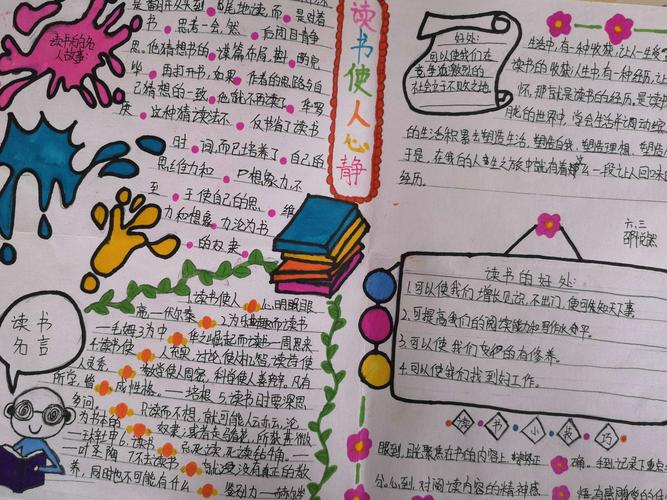 读书的名
人故事:
是翻开从头到
尾地读,而
是对着
书
思考一会,然
后闭目静
思,他猜想书的
谋篇布局,斟
再打开书,如果
作者的思路与自
己猜想的一致,
他就不再读了,华罗
庚
这种猜读法不
仅节省了读书
时
间,而且培养了
自己的
思维力和
想象力,不
至
于使自己的思
维
力和想象
力沦为书
的奴隶
读书使人心静
好处:
可以使我们在
竞争激烈的
社会立于不败之地
生活中,有一种收获,让人
读书的收获;人生中,有一种经历,让
怀,那就是读书的经历,是读书
胧的世界中,学会生活并调动
的生活积累去塑造生活,塑造自我,塑造理想,塑造
于是,在我的人生之旅中就有着这么一段让人回味
经历。
六.三
读书的好处:
1.可以使我们增长见识,不出门,便可能知天下事
2.可提高我们的阅读能力和写作水平。
3.可以使我们变的有修养。
4.可以使我们找到好工作。
读书小技巧
眼到:目光聚焦在书的内容上
确。手到:记录下重
分。心到:对阅读内容的精神感
读书
名言
1.读书使人
心明眼
亮—伏尔泰
2.为
而读书
—毛姆3.为中
华之崛起而读—周恩来
4.读书使
人充实,讨论使人机智,
人灵秀,
数学使人周密,科学使人
,凡有
所学,皆
成性格。——培根
5.读书时要深思
多问,
只读而不想,就可能人云亦云,沦
为书本的
奴隶;或者走马看花,所获甚微
——王梓坤6.读书
忌死读,死读
——叶圣陶
7.不去读书
就没有真正的教
养,同时也不可能有什么
鉴别力——赫尔岑